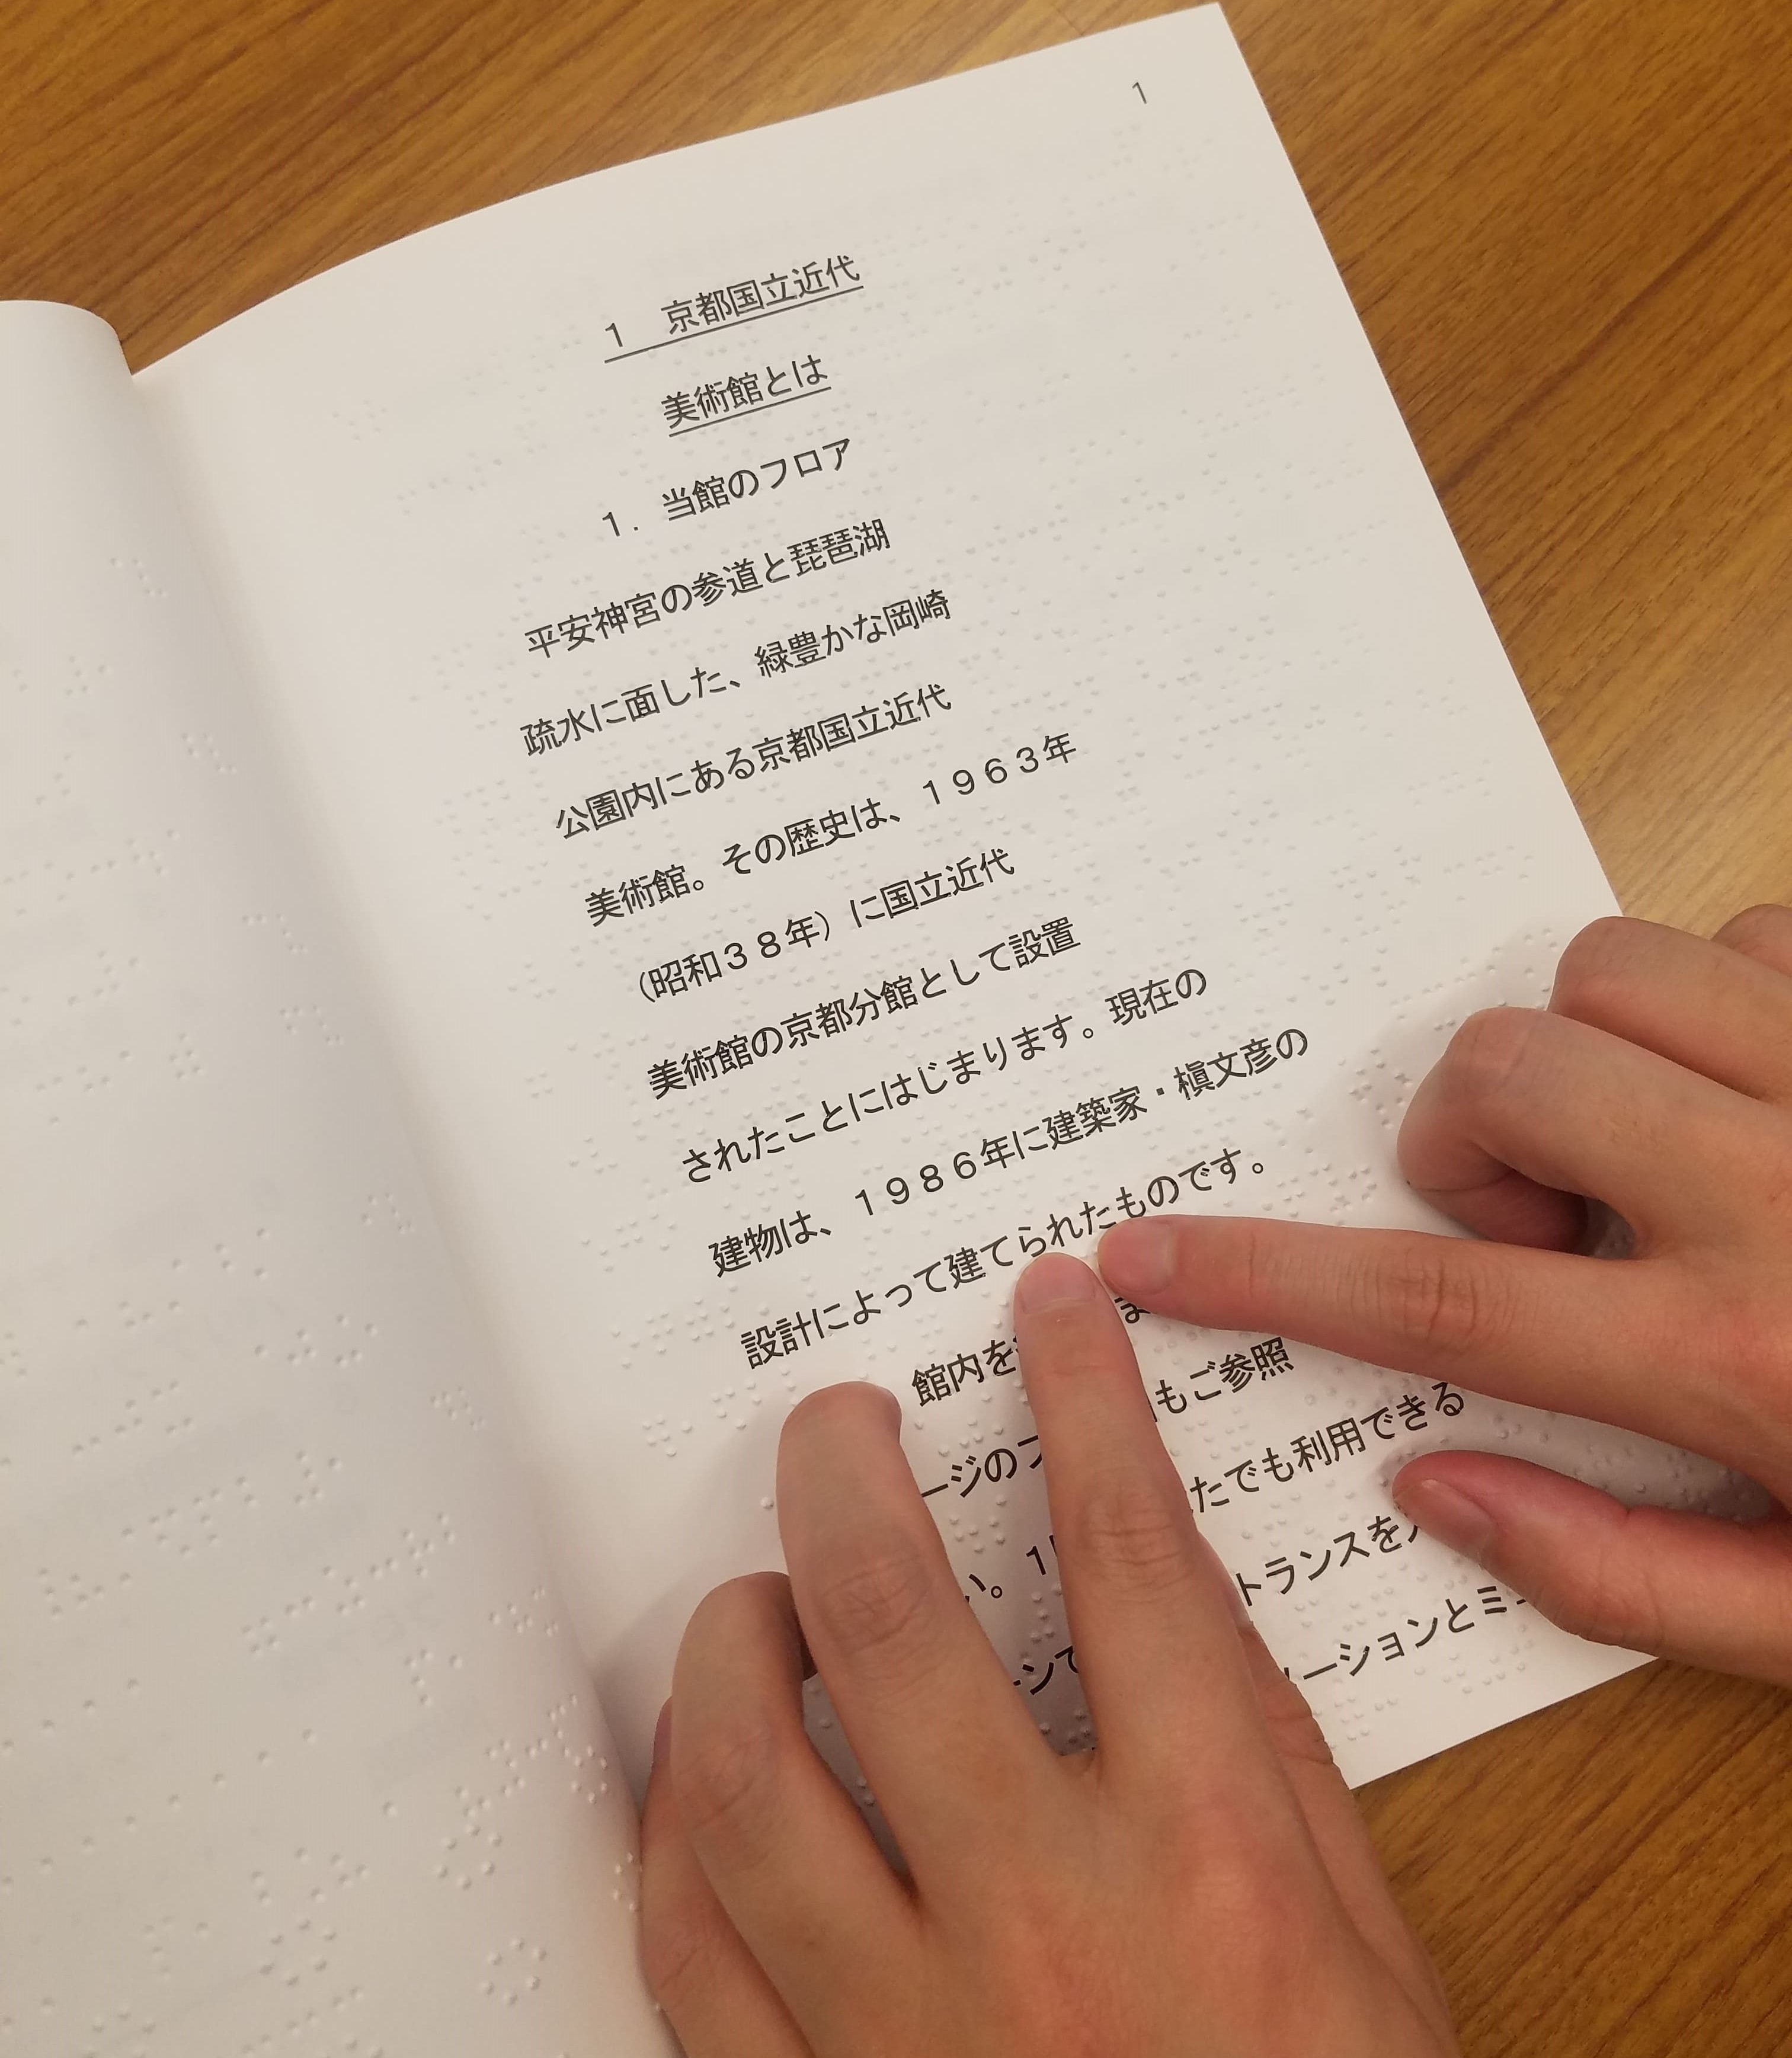 1
1 京都国立近代
美術館とは
1. 当館のフロア
平安神宮の参道と琵琶湖
疏水に面した、緑豊かな岡崎
公園内にある京都国立近代
美術館。その歴史は、1963年
(昭和38年)に国立近代
美術館の京都分館として設置
されたことにはじまります。現在の
建物は、1986年に建築家・槇文彦の
設計によって建てられたものです。
館内を
もご参照
ージのフ たでも利用できる
い。1 トランスを
ーションとミュ